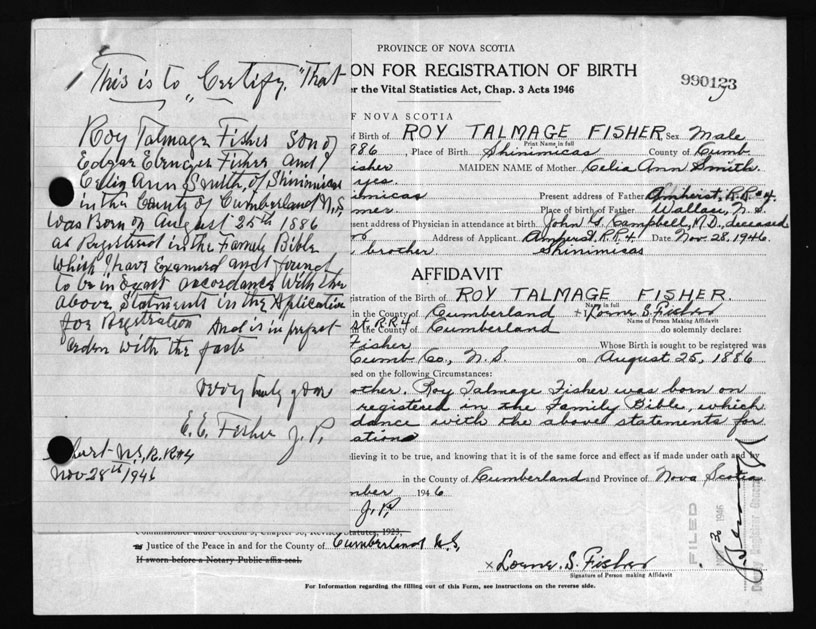 This is to "Certify" "That
Roy Talmage Fisher Son of
Edgar Ebenezer Fisher and
Celia Ann Smith, of Shinimicas
in the County of Cumberland N.S,
was Born on August 25th 1886
as Registered in the Family Bible
which I have Examined and found
to be in Exact accordance with the
above Statements in the Application
for Registration And is in perfect
orden with the facts
very truly your
E.E. Fisher J.P.
N.S, R.R#4
Nov 28th 1946
PROVINCE OF NOVA SCOTIA
ON FOR REGISTRATION OF BIRTH
990123
er the Vital Statistics Act, Chap. 3 Acts 1946
F NOVA SCOTIA
of Birth of ROY TALMAGE FISHER Sex Male
Print Name in full
886, Place of Birth Shinimicas County of Cumb
isher MAIDEN NAME of Mother Celia Ann Smith.
yes.
imicas Present address of Father Amherst, R.R #4.
mer Place of birth of Father Wallace, N.S.
sent address of Physician in attendance at birth John G. Campbell, M.D., deceased
Address of Applicant Amherst R.R.4! Date Nov. 28, 1946.
brother. Shinimicas
AFFIDAVIT
istration of the Birth of ROY TALMAGE FISHER.
Name in full
in the County of Cumberland I Lorne S. Fisher
Name of Person Making Affidavit
st. R.R 4 in the County of Cumberland do solemnly declare:
Fisher Whose Birth is sought to be registered was
Cumb Co., N.S. on August 25, 1886
sed on the following Circumstances:
other. Roy Talmage Fisher was born on
registered in the Family Bible, which
dance with the above statements for
ation
lieving it to be true, and knowing that it is of the same force and effect as if made under oath and by
in the County of Cumberland and Province of Nova Scotia
mber 1946
J.P.
Commissioner under Section 3, Chapter 38, Revised Statutes, 1923,
Justice of the Peace in and for the County of Cumberland N.S,
If sworn before a Notary Public affix seal.
x Lorne. S. Fisher
Signature of Person making Affidavit
FILED
1946
For Information regarding the filling out of this Form, see instructions on the reverse side.